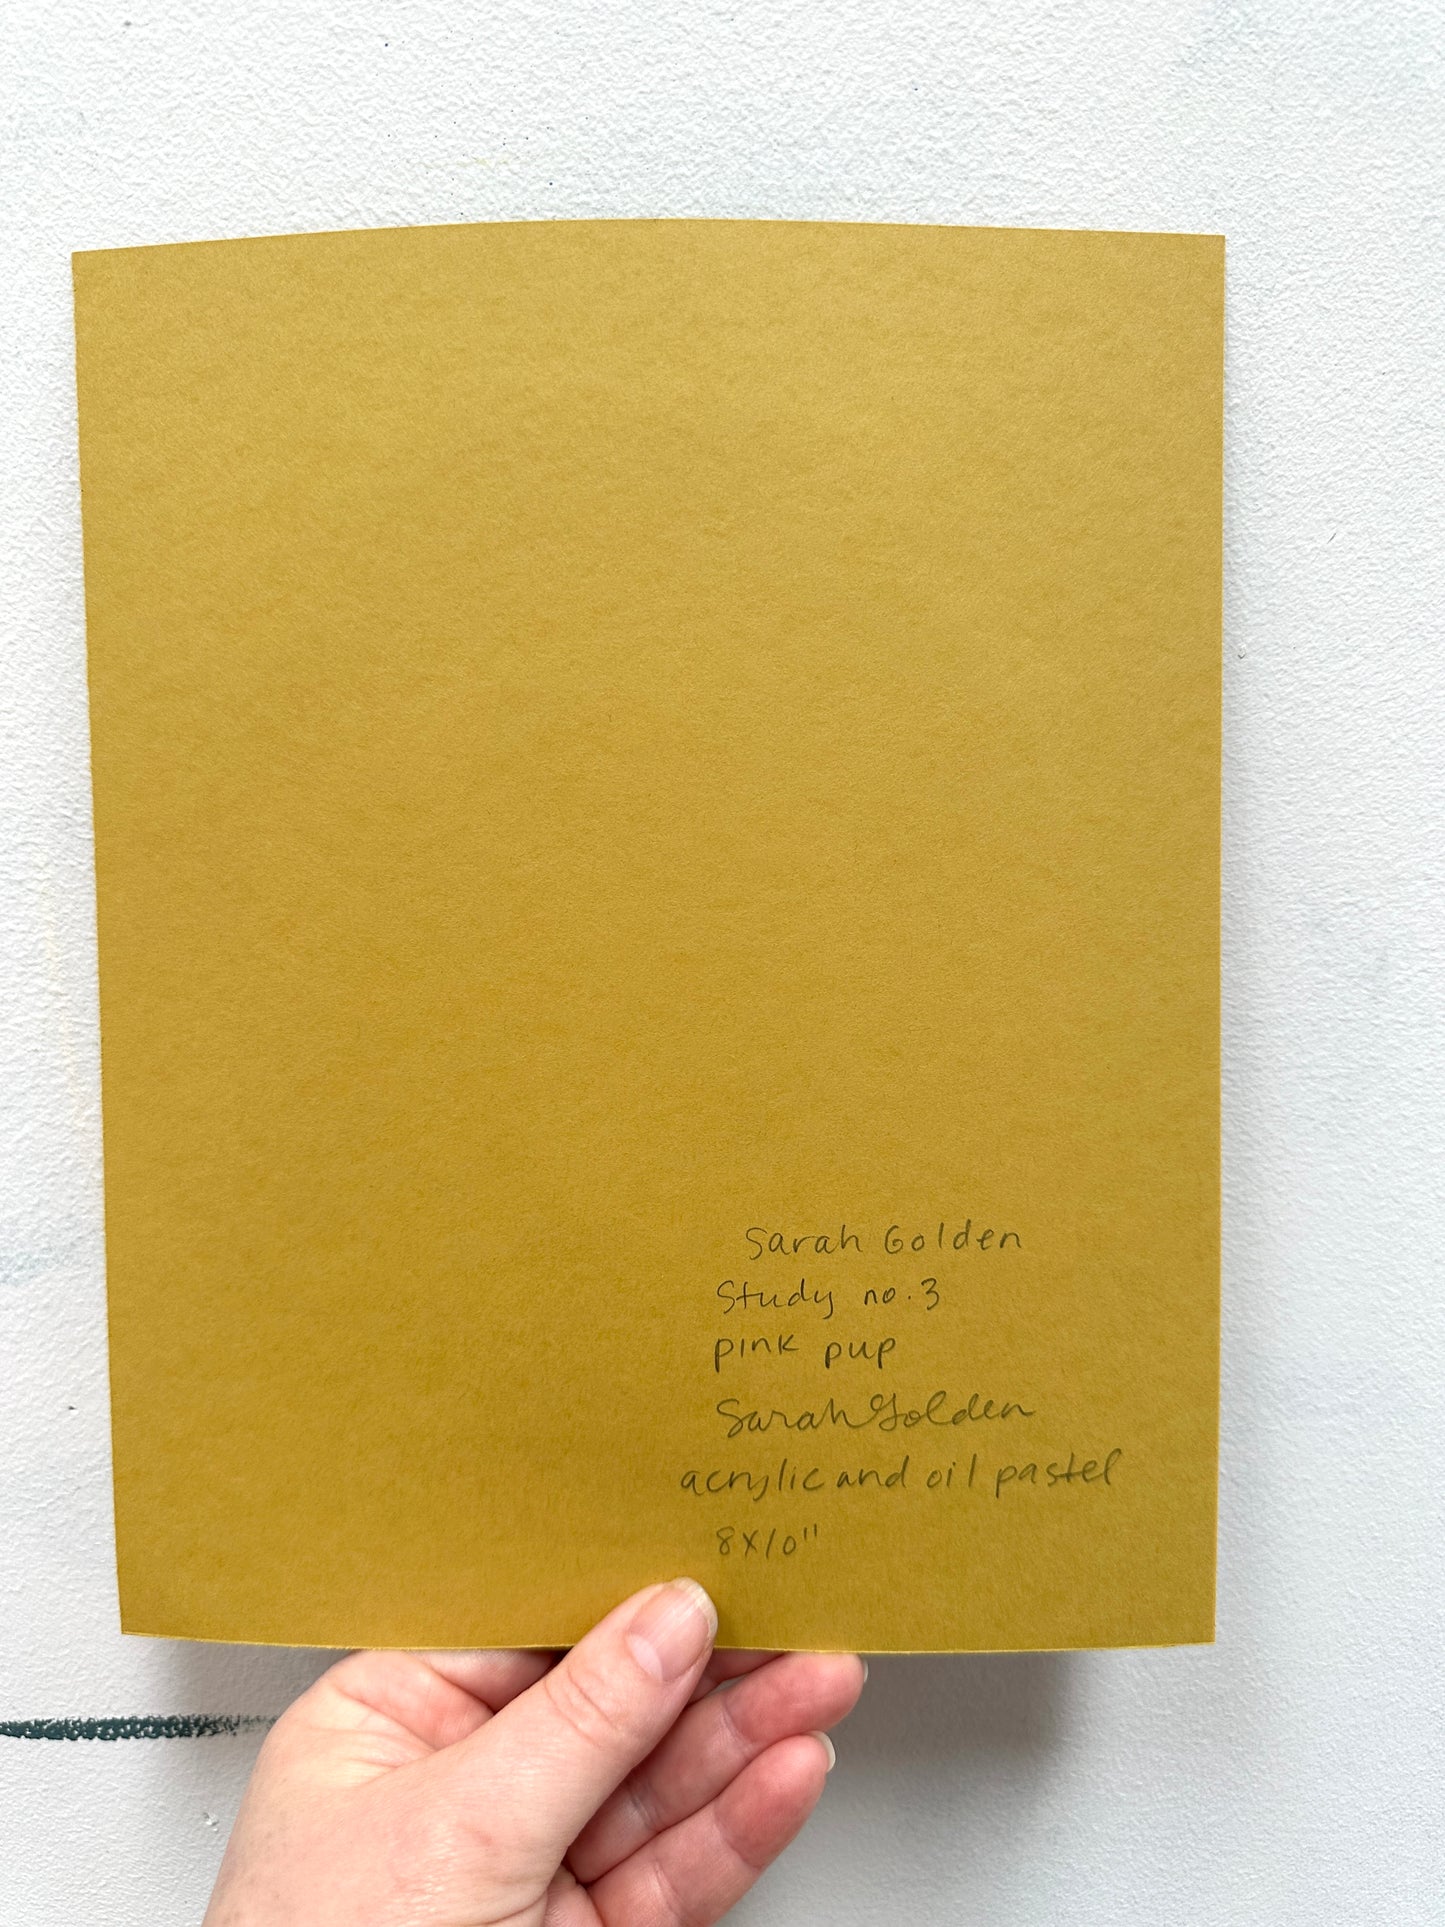 Sarah Golden
Study no. 3
pink pup
Sarah Golden
acrylic and oil pastel
8x10"